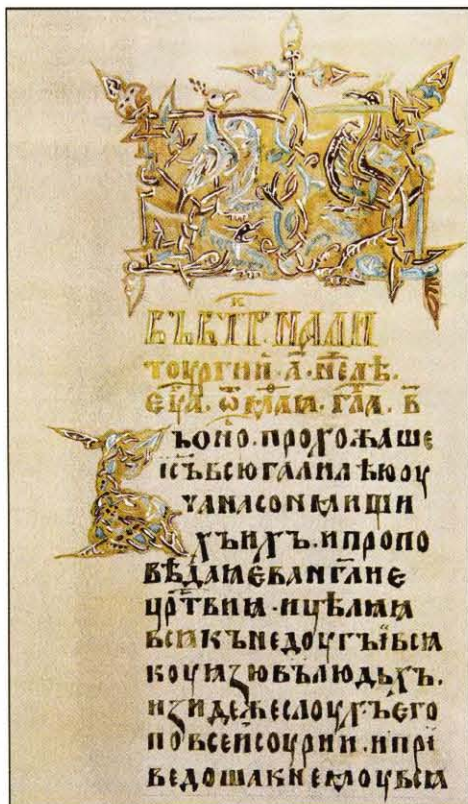 ВЪ ВТР҃К. НА ЛИ
ТОУРГИИ. А҃. НЕ҃ЛѢ.
ЕУ҃А. Ѿ МА҃Ѳ. ГЛ҃А. В҃
ВЪ ОНО. ПРОХОЖАШЕ
ІС҃Ъ ВСЮ ГАЛИЛѢЮ ОУ
ЧА НА СОНМИЩИ
ХЪ ИХЪ. И ПРОПО
ВѢДАꙖ ЕВАНГ҃ЛИЕ
ЦРТ҃ВИꙖ. И ЦѢЛꙖꙖ
ВСꙖКЪ НЕДОУГЪ Ї ВСꙖ
КОУ ꙖЗЮ ВЪ ЛЮДЬХЪ.
ИЗИДЕ ЖЕ СЛОУХЪ ЕГО
ПО ВСЕЙ СОУРИИ. И ПРІ
ВЕДОША К НЕМОУ ВСꙖ